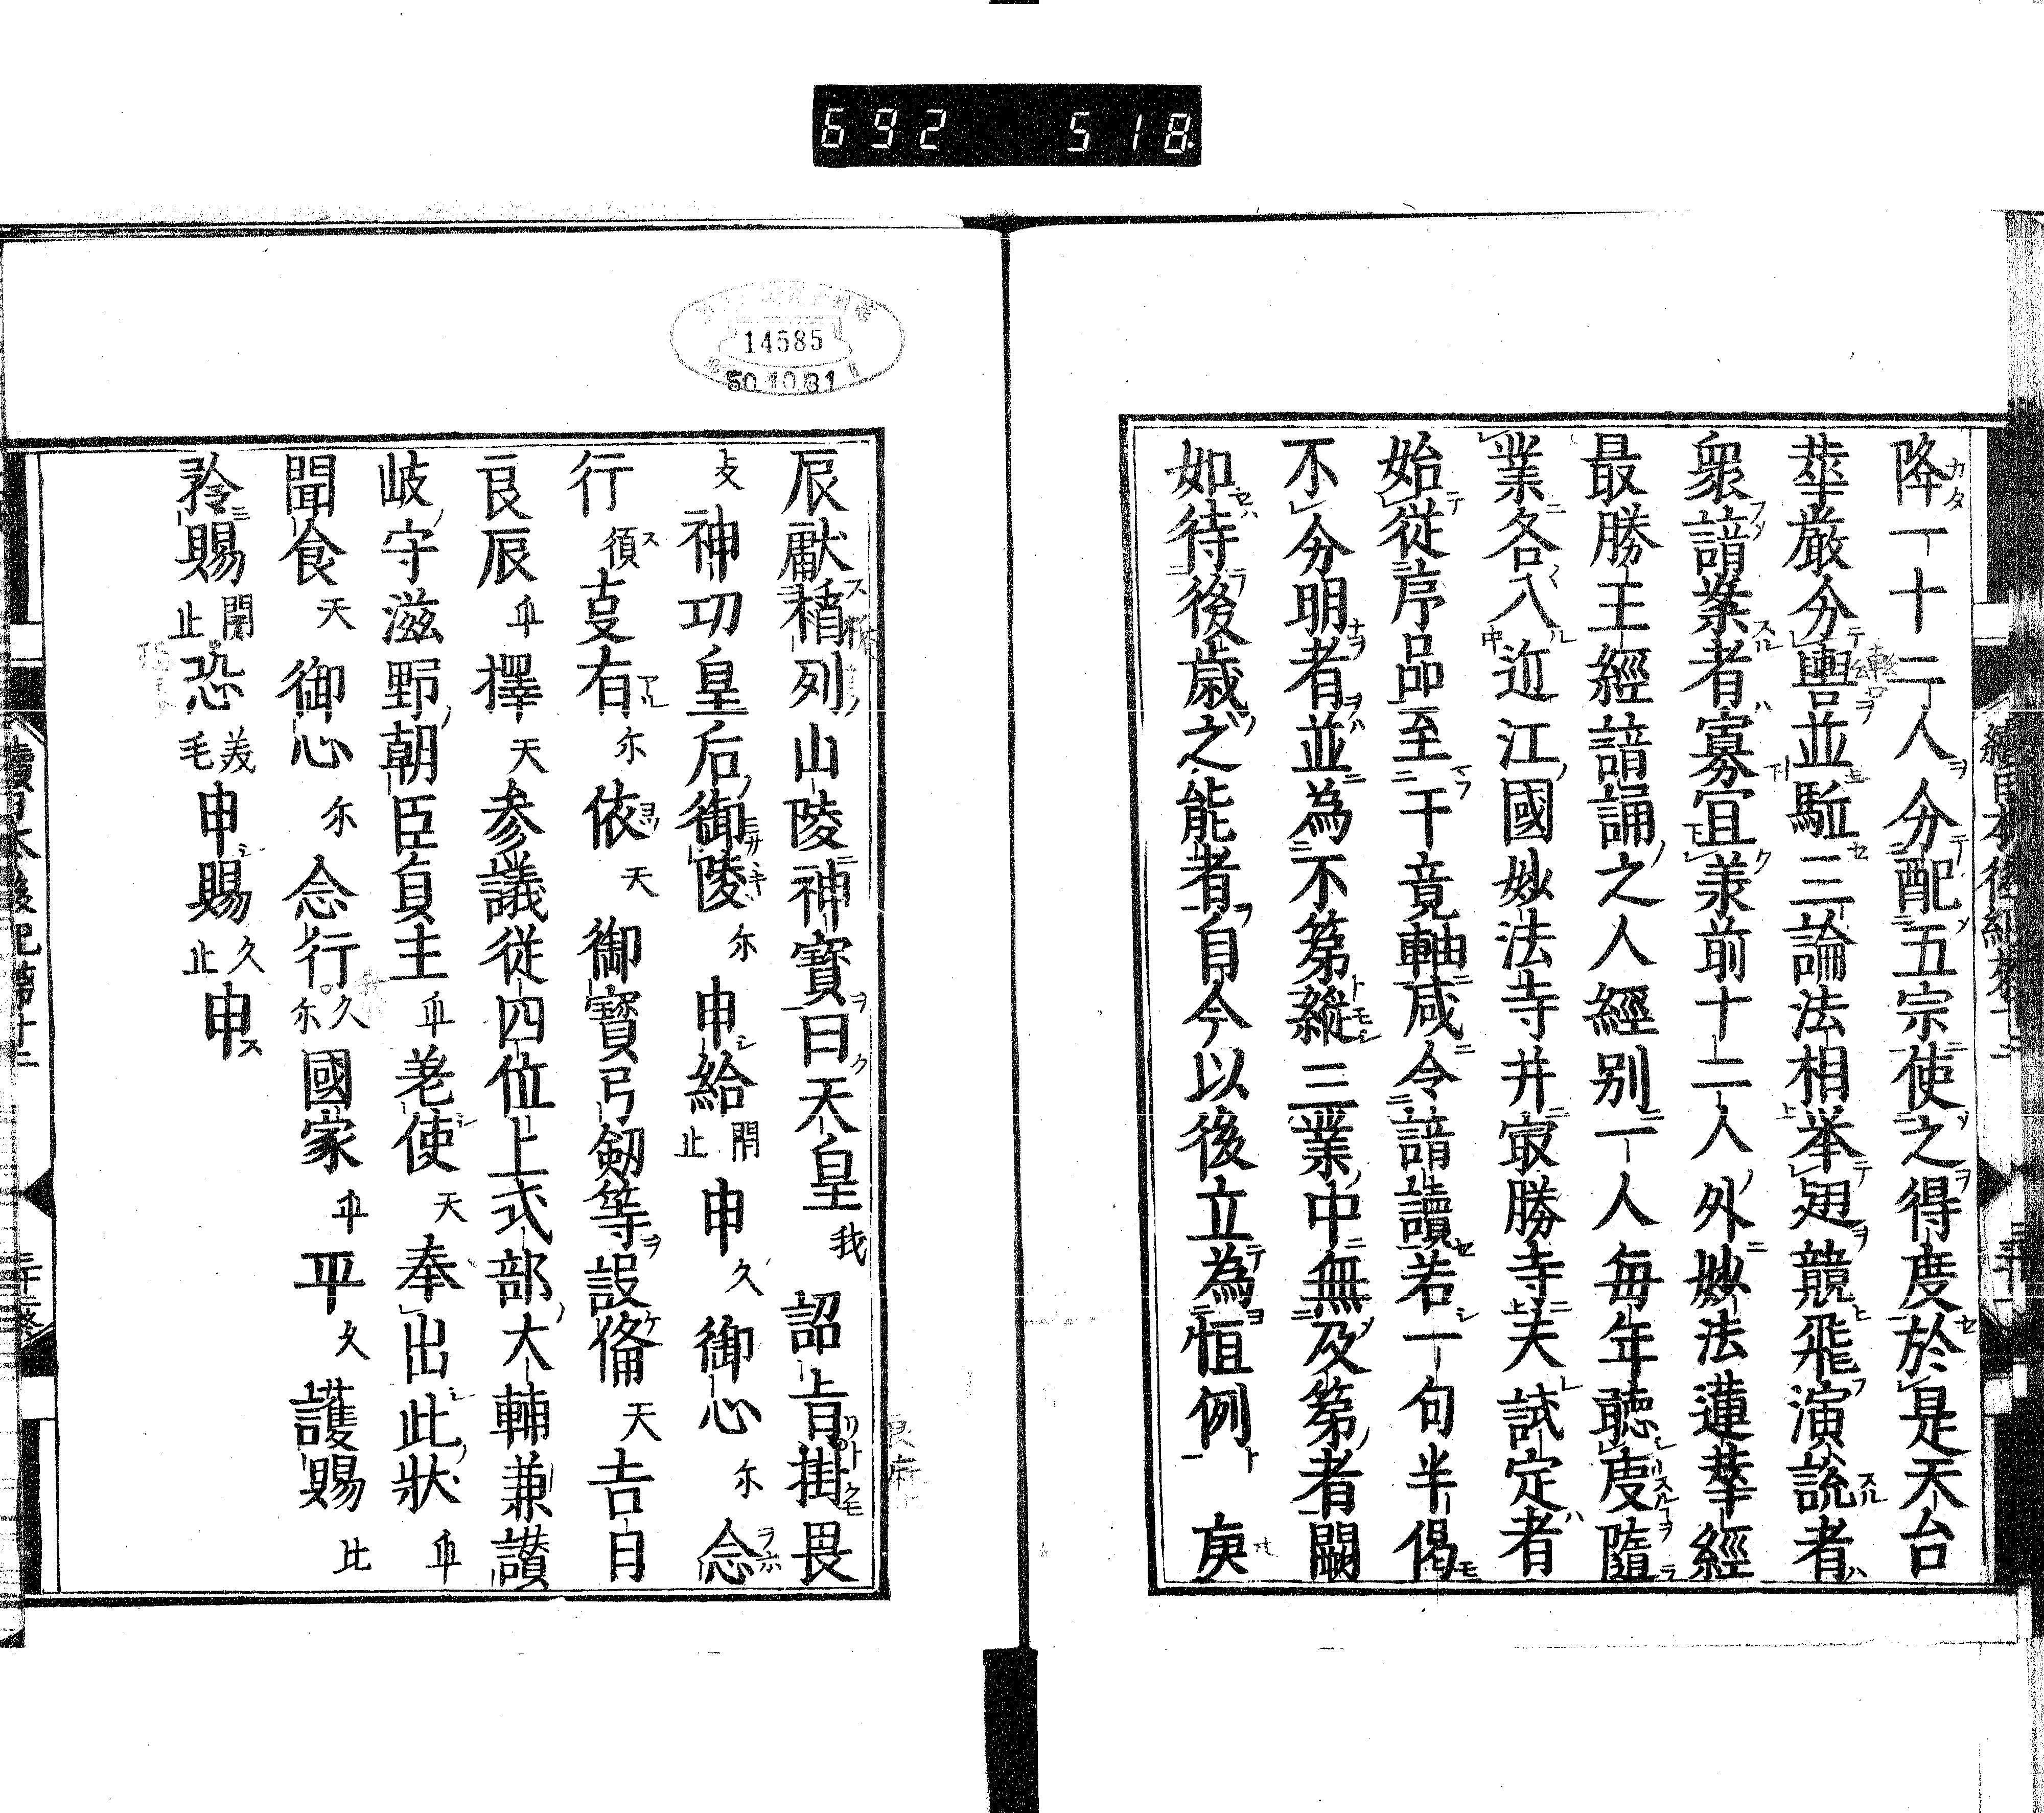 692 518
降一十二人分配五宗使之得度於是天台
華厳分轡並駈三論法相挙翅競飛演説者
衆諳業者寡宜兼前十二人外妙法蓮華経
最勝王經諳誦之人經別一人毎年聴度隨
業各入近江國妙法寺并㝡勝寺夫試定者
始従序品至于竟軸咸令諳讀若一句半偈
不分明者並為不第縦三業中無及第者闕
如待後歳之能者自今以後立為恒例 庚
14585
50.10.31
辰獻楯列山陵神寶曰天皇我 詔旨掛畏
支神功皇后御陵尓申給閇止申久御心尓念
行須支有尓依天御寶弓劔等設俻天吉日
良辰乎擇天参議従四位上式部大輔兼讃
岐守滋野朝臣貞主乎差使天奉出此状乎
聞食天御心尓念行久尓國家乎平久護賜比
矜賜閇止恐美毛申賜久止申
續日本後紀第十二